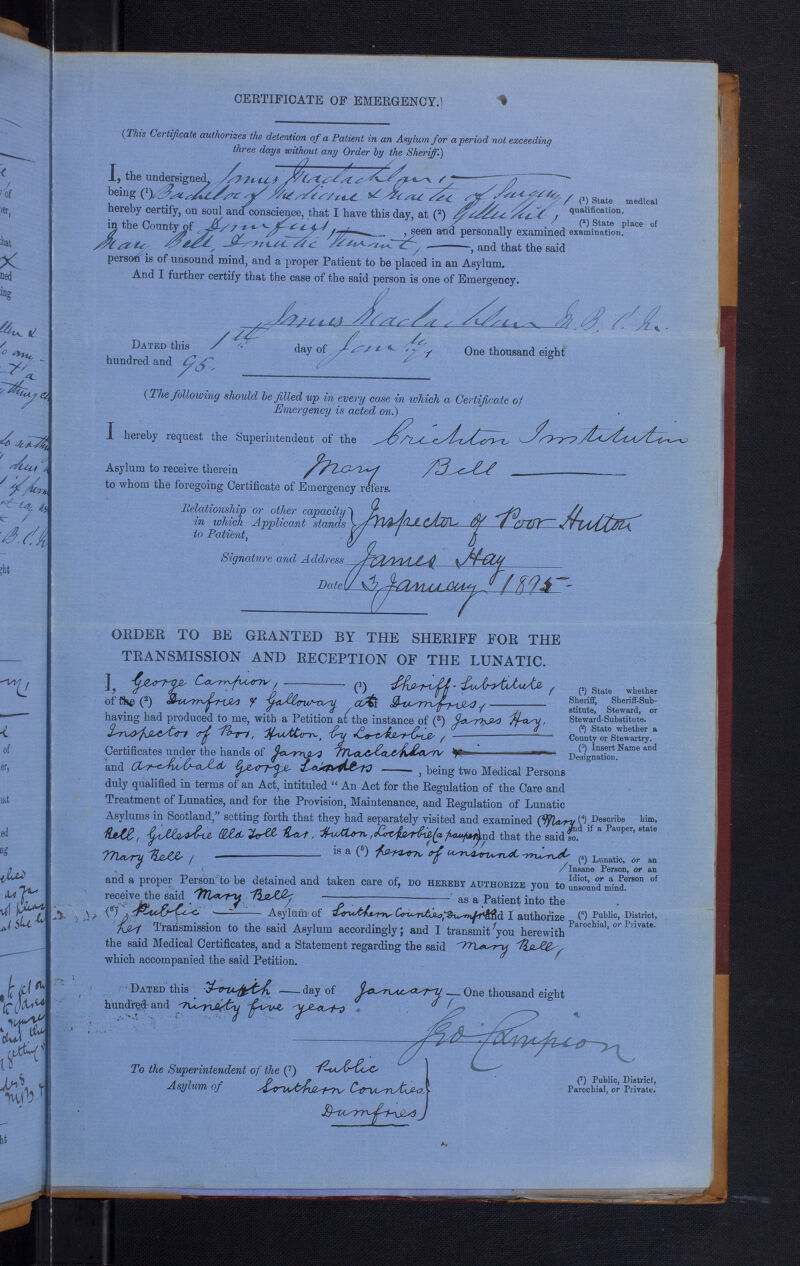 CERTIFICATE OF EMERGENCY.
(This Certificate authorizes the detention of a Patient in an Asylum for a period not exceeding
three days without any Order by the Sheriff.)
I, the undersigned, James Maclachlan
being (¹) Bachelor of Medicine & Master of Surgery,
hereby certify, on soul and conscience, that I have this day, at (²)
in the County of Dumfries, , seen and personally examined
Mary Bell Domestic Servant, , and that the said
person is of unsound mind, and a proper Patient to be placed in an Asylum.
And I further certify that the case of the said person is one of Emergency.
(¹) State medical
qualification.
(²) State place of
examination.
James Maclachlan M.B. C.M.
DATED this 1st day of Jany One thousand eight
hundred and 95.
(The following should be filled up in every case in which a Certificate of
Emergency is acted on.)
I hereby request the Superintendent of the Crichton Institution
Asylum to receive therein Mary Bell
to whom the foregoing Certificate of Emergency refers.
Relationship or other capacity
in which Applicant stands
to Patient,
Inspector of Poor Hutton
Signature and Address James Hay
Date 3 January 1895
ORDER TO BE GRANTED BY THE SHERIFF FOR THE
TRANSMISSION AND RECEPTION OF THE LUNATIC.
I, George Campion, (¹) Sheriff-Substitute,
of the (²) Dumfries & Galloway at Dumfries,
having had produced to me, with a Petition at the instance of (³) James Hay,
Inspector of Poor, Hutton, by Lockerbie,
Certificates under the hands of James Maclachlan
and Archibald George Sanders , being two Medical Persons
duly qualified in terms of an Act, intituled "An Act for the Regulation of the Care and
Treatment of Lunatics, and for the Provision, Maintenance, and Regulation of Lunatic
Asylums in Scotland," setting forth that they had separately visited and examined (⁴) Mary
Bell, Gillesbie Old Toll Bar, Hutton, Lockerbie (a pauper) and that the said
Mary Bell, is a (⁵) person of unsound mind
and a proper Person to be detained and taken care of, DO HEREBY AUTHORIZE you to
receive the said Mary Bell, as a Patient into the
(⁶) Public Asylum of Southern Counties, Dumfries and I authorize
her Transmission to the said Asylum accordingly; and I transmit you herewith
the said Medical Certificates, and a Statement regarding the said Mary Bell,
which accompanied the said Petition.
(¹) State whether
Sheriff, Sheriff-Sub-
stitute, Steward, or
Steward-Substitute.
(²) State whether a
County or Stewartry.
(³) Insert Name and
Designation.
(⁴) Describe him,
and if a Pauper, state
so.
(⁵) Lunatic, or an
Insane Person, or an
Idiot, or a Person of
unsound mind.
(⁶) Public, District,
Parochial, or Private.
DATED this Fourth day of January One thousand eight
hundred and ninety five years.
Geo. Campion
To the Superintendent of the (⁷) Public
Asylum of Southern Counties
Dumfries
(⁷) Public, District,
Parochial, or Private.